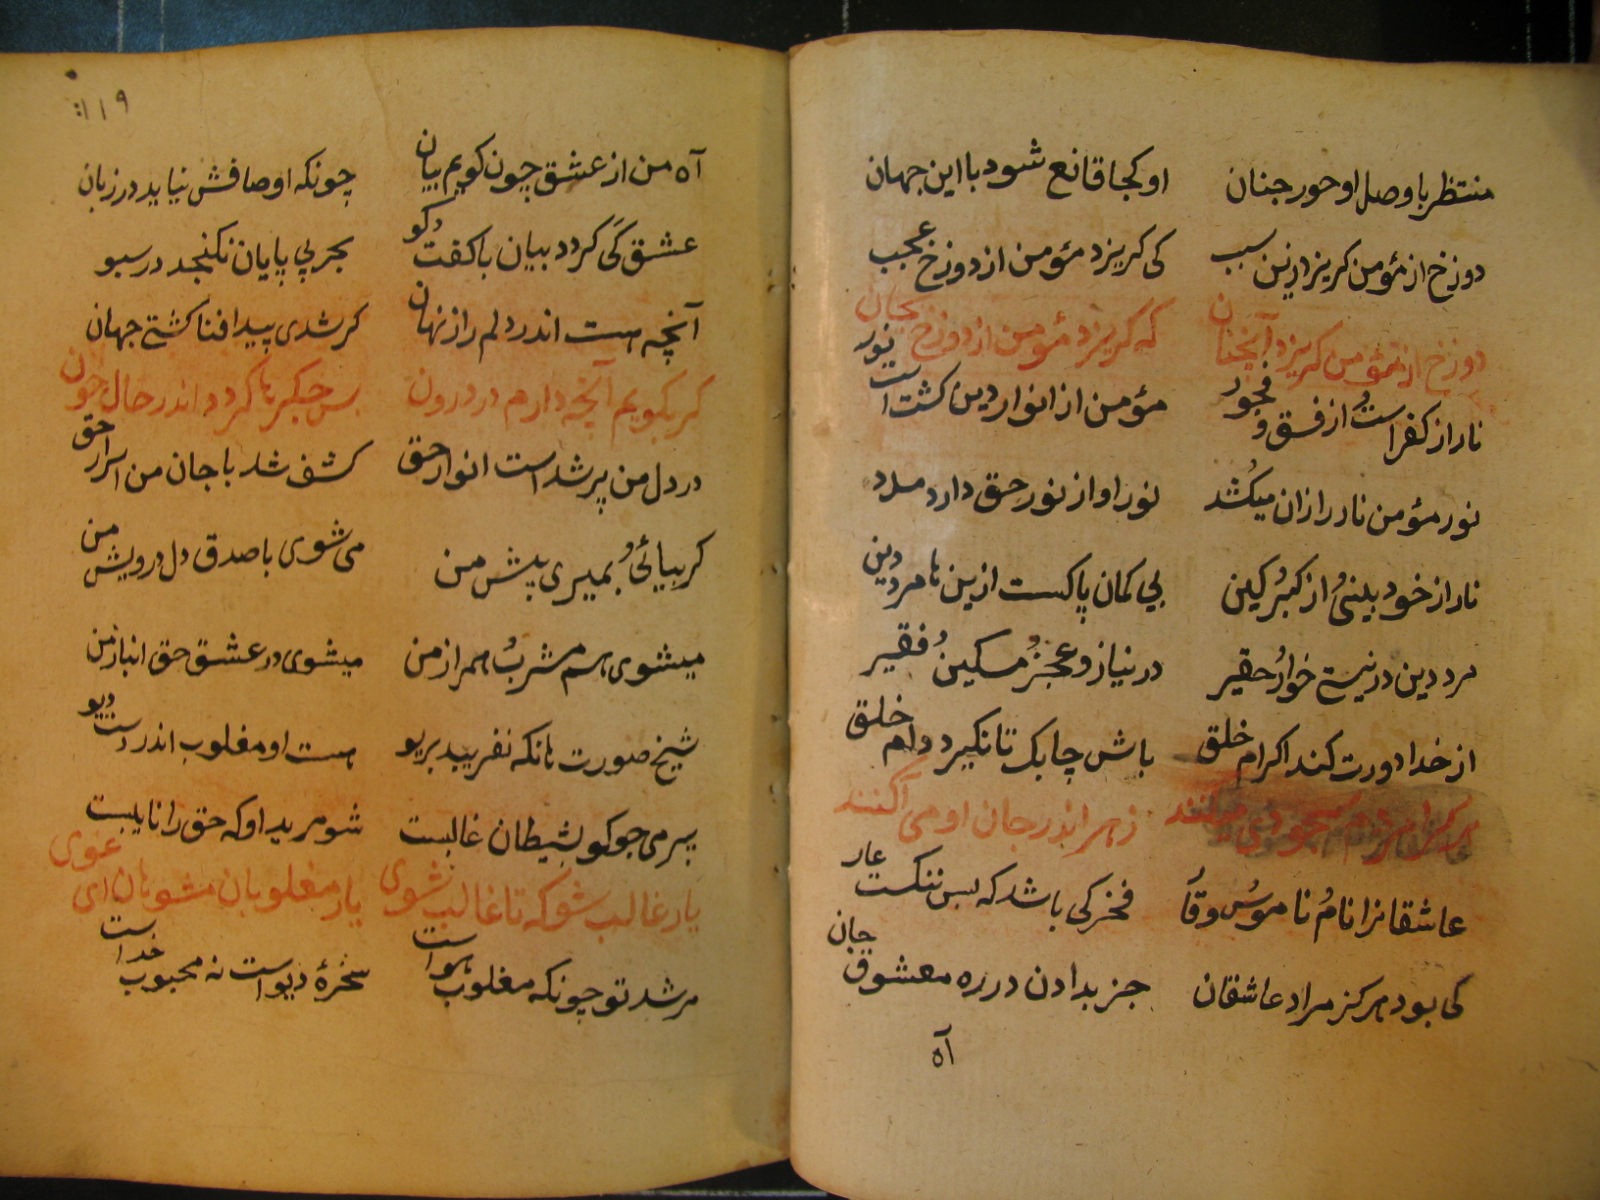 منتظر با وصل او حور جنان او کجا قانع شود با این جهان
دوزخ از مؤمن کریزد زین سبب کی کریزد مؤمن از دوزخ عجب
دوزخ از مؤمن کریزد آنچنان که کریزد مؤمن از دوزخ بجان
نار از کفر است از فسق و فجور مؤمن از انوار دین کشت است نور
نور مؤمن نار را زان میکشد نور او از نور حق دارد مدد
نار از خود بینیُ از کبرُ کین بی کمان پاکست ازین ها مرد دین
مرد دین در نیستی خوارُ حقیر در نیاز و عجزُ مسکینُ فقیر
از خدا دورت کند اکرام خلق باش چابک تا نکیرد دام خلق
هر کرا مردم سجودی میکنند زهر اندر جان او می آکنند
عاشقانرا نامُ ناموسُ وقار فخر کی باشد که بس ننکست عار
کی بود هرکز مراد عاشقان جز بدادن در ره معشوق جان
آه
۱۱۹
آه من از عشق چون کویم بیان چونکه اوصافش نیاید در زبان
عشق کی کردد بیان با کفت وکو بحر بی پایان نکنجد در سبو
آنچه هست اندر دلم راز نهان کر شدی پیدا فنا کشتی جهان
کر بکویم آنچه دارم در درون بس جکرها کردد اندر حال خون
در دل من پر شد است انوار حق کشف شد با جان من اسرار حق
کر بیائیُ بمیری پیش من می شوی با صدق دل درویش من
میشوی هم مشربُ همراز من میشوی در عشق حق انباز من
شیخ صورت هانکه نفریبد بریو هست او مغلوب اندر دست دیو
پیر می جو کو بشیطان غالبست شو مرید او که حق را نایبست
یار غالب شو که تا غالب شوی یار مغلوبان مشو هان ای غوی
مرشد تو چونکه مغلوب هواست سخرهٔ دیو است نه محبوب خداست